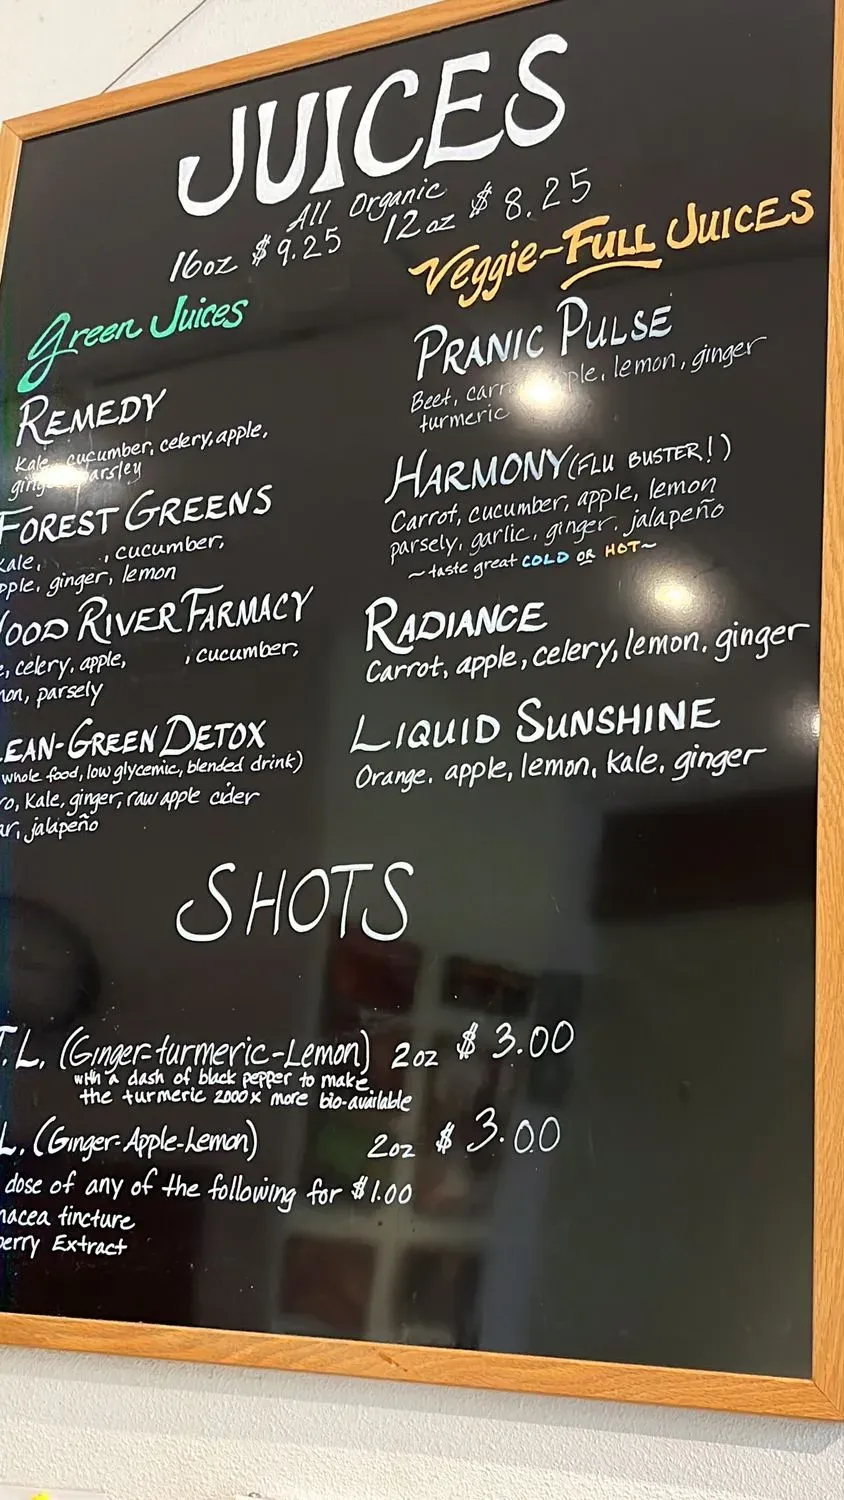 JUICES
All Organic
16oz $9.25 12oz $8.25
Green Juices
REMEDY
Kale, cucumber, celery, apple,
FOREST GREENS
Kale, , cucumber,
apple, ginger, lemon
WOOD RIVER FARMACY
, celery, apple, , cucumber,
parsely
LEAN-GREEN DETOX
whole food, low glycemic, blended drink)
Kale, ginger, raw apple cider
jalapeño
Veggie-FULL JUICES
PRANIC PULSE
Beet, lemon, ginger
turmeric
HARMONY (FLU BUSTER!)
Carrot, cucumber, apple, lemon
parsely, garlic, ginger, jalapeño
~taste great COLD OR HOT~
RADIANCE
Carrot, apple, celery, lemon, ginger
LIQUID SUNSHINE
Orange, apple, lemon, kale, ginger
SHOTS
.T.L. (Ginger-turmeric-Lemon) 2oz $3.00
with a dash of black pepper to make
the turmeric 2000x more bio-available
L. (Ginger-Apple-Lemon) 2oz $3.00
dose of any of the following for $1.00
tincture
Extract